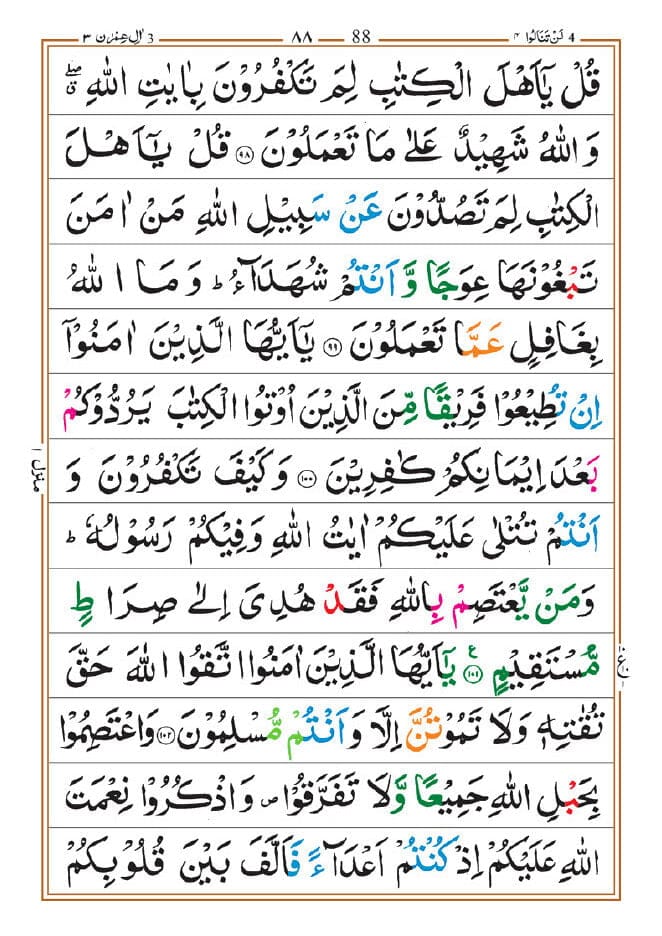 4 لَنْ تَنَالُوا ۴ 88 ۸۸ 3 اٰلِ عِمْرٰن ۳
قُلْ يٰۤاَهْلَ الْكِتٰبِ لِمَ تَكْفُرُوْنَ بِاٰيٰتِ اللّٰهِ ۖۗ
وَاللّٰهُ شَهِيْدٌ عَلٰى مَا تَعْمَلُوْنَ ﴿۹۸﴾ قُلْ يٰۤاَهْلَ
الْكِتٰبِ لِمَ تَصُدُّوْنَ عَنْ سَبِيْلِ اللّٰهِ مَنْ اٰمَنَ
تَبْغُوْنَهَا عِوَجًا وَّاَنْتُمْ شُهَدَآءُ ؕ وَمَا اللّٰهُ
بِغَافِلٍ عَمَّا تَعْمَلُوْنَ ﴿۹۹﴾ يٰۤاَيُّهَا الَّذِيْنَ اٰمَنُوْۤا
اِنْ تُطِيْعُوْا فَرِيْقًا مِّنَ الَّذِيْنَ اُوْتُوا الْكِتٰبَ يَرُدُّوْكُمْ
بَعْدَ اِيْمَانِكُمْ كٰفِرِيْنَ ﴿۱۰۰﴾ وَكَيْفَ تَكْفُرُوْنَ وَ
اَنْتُمْ تُتْلٰى عَلَيْكُمْ اٰيٰتُ اللّٰهِ وَفِيْكُمْ رَسُوْلُهٗ ؕ
وَمَنْ يَّعْتَصِمْ بِاللّٰهِ فَقَدْ هُدِىَ اِلٰى صِرَاطٍ
مُّسْتَقِيْمٍ ﴿۱۰۱﴾ ع يٰۤاَيُّهَا الَّذِيْنَ اٰمَنُوا اتَّقُوا اللّٰهَ حَقَّ
تُقٰتِهٖ وَلَا تَمُوْتُنَّ اِلَّا وَاَنْتُمْ مُّسْلِمُوْنَ ﴿۱۰۲﴾ وَاعْتَصِمُوْا
بِحَبْلِ اللّٰهِ جَمِيْعًا وَّلَا تَفَرَّقُوْا ۪ وَاذْكُرُوْا نِعْمَتَ
اللّٰهِ عَلَيْكُمْ اِذْ كُنْتُمْ اَعْدَآءً فَاَلَّفَ بَيْنَ قُلُوْبِكُمْ
منزل ۱